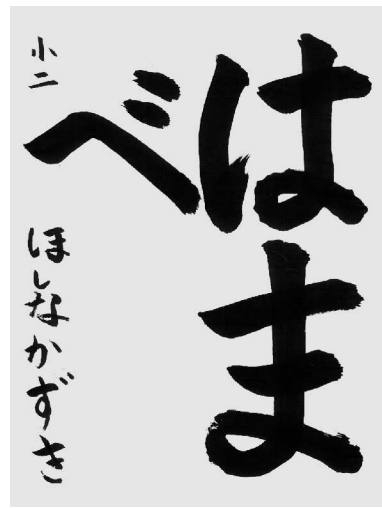 はま
べ
小二
ほしなかずき